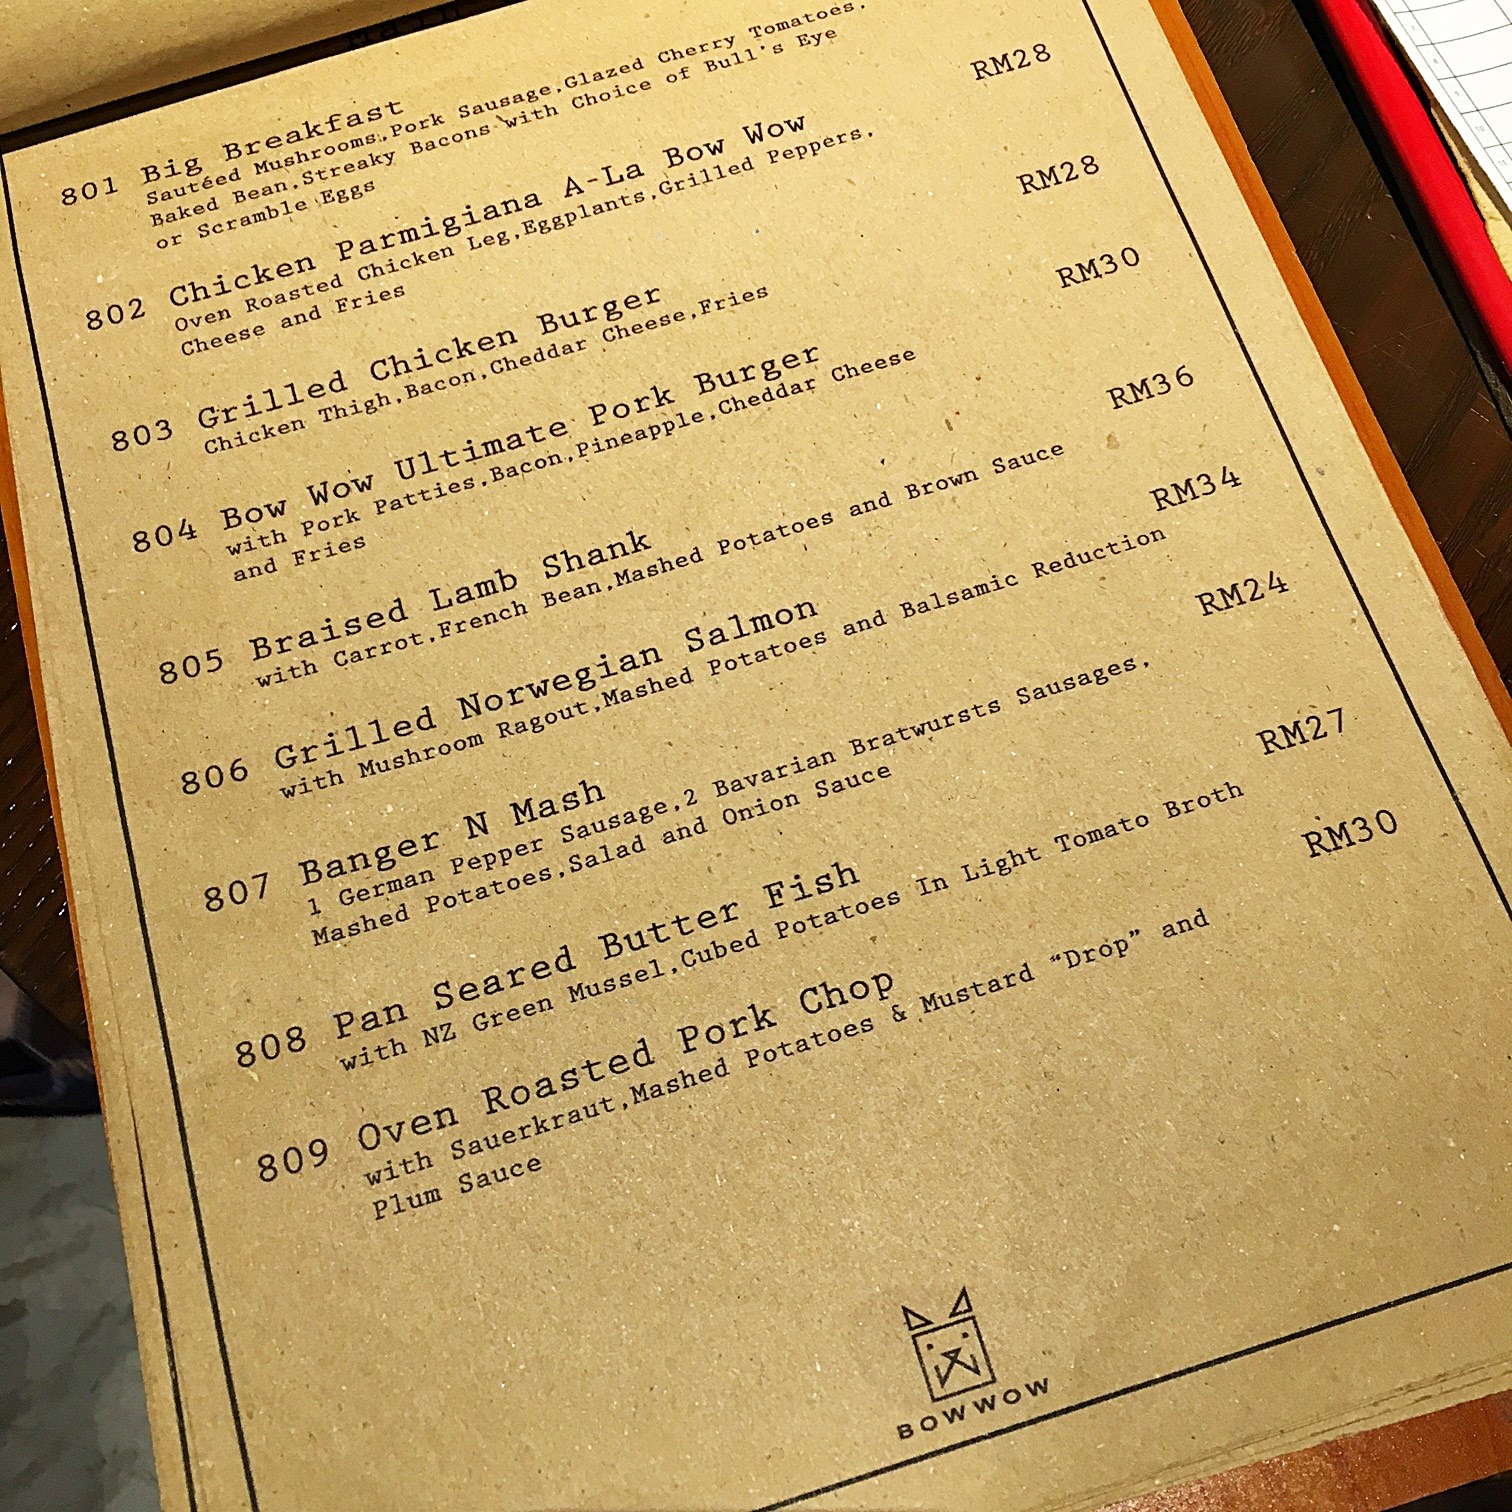 801 Big Breakfast
Sautéed Mushrooms,Pork Sausage,Glazed Cherry Tomatoes,
Baked Bean,Streaky Bacons with Choice of Bull's Eye
or Scramble Eggs
802 Chicken Parmigiana A-La Bow Wow RM28
Oven Roasted Chicken Leg,Eggplants,Grilled Peppers,
Cheese and Fries
803 Grilled Chicken Burger RM28
Chicken Thigh,Bacon,Cheddar Cheese,Fries
804 Bow Wow Ultimate Pork Burger RM30
with Pork Patties,Bacon,Pineapple,Cheddar Cheese
and Fries
805 Braised Lamb Shank RM36
with Carrot,French Bean,Mashed Potatoes and Brown Sauce
806 Grilled Norwegian Salmon RM34
with Mushroom Ragout,Mashed Potatoes and Balsamic Reduction
807 Banger N Mash RM24
1 German Pepper Sausage,2 Bavarian Bratwursts Sausages,
Mashed Potatoes,Salad and Onion Sauce
808 Pan Seared Butter Fish RM27
with NZ Green Mussel,Cubed Potatoes In Light Tomato Broth
809 Oven Roasted Pork Chop RM30
with Sauerkraut,Mashed Potatoes & Mustard “Drop” and
Plum Sauce
BOWWOW